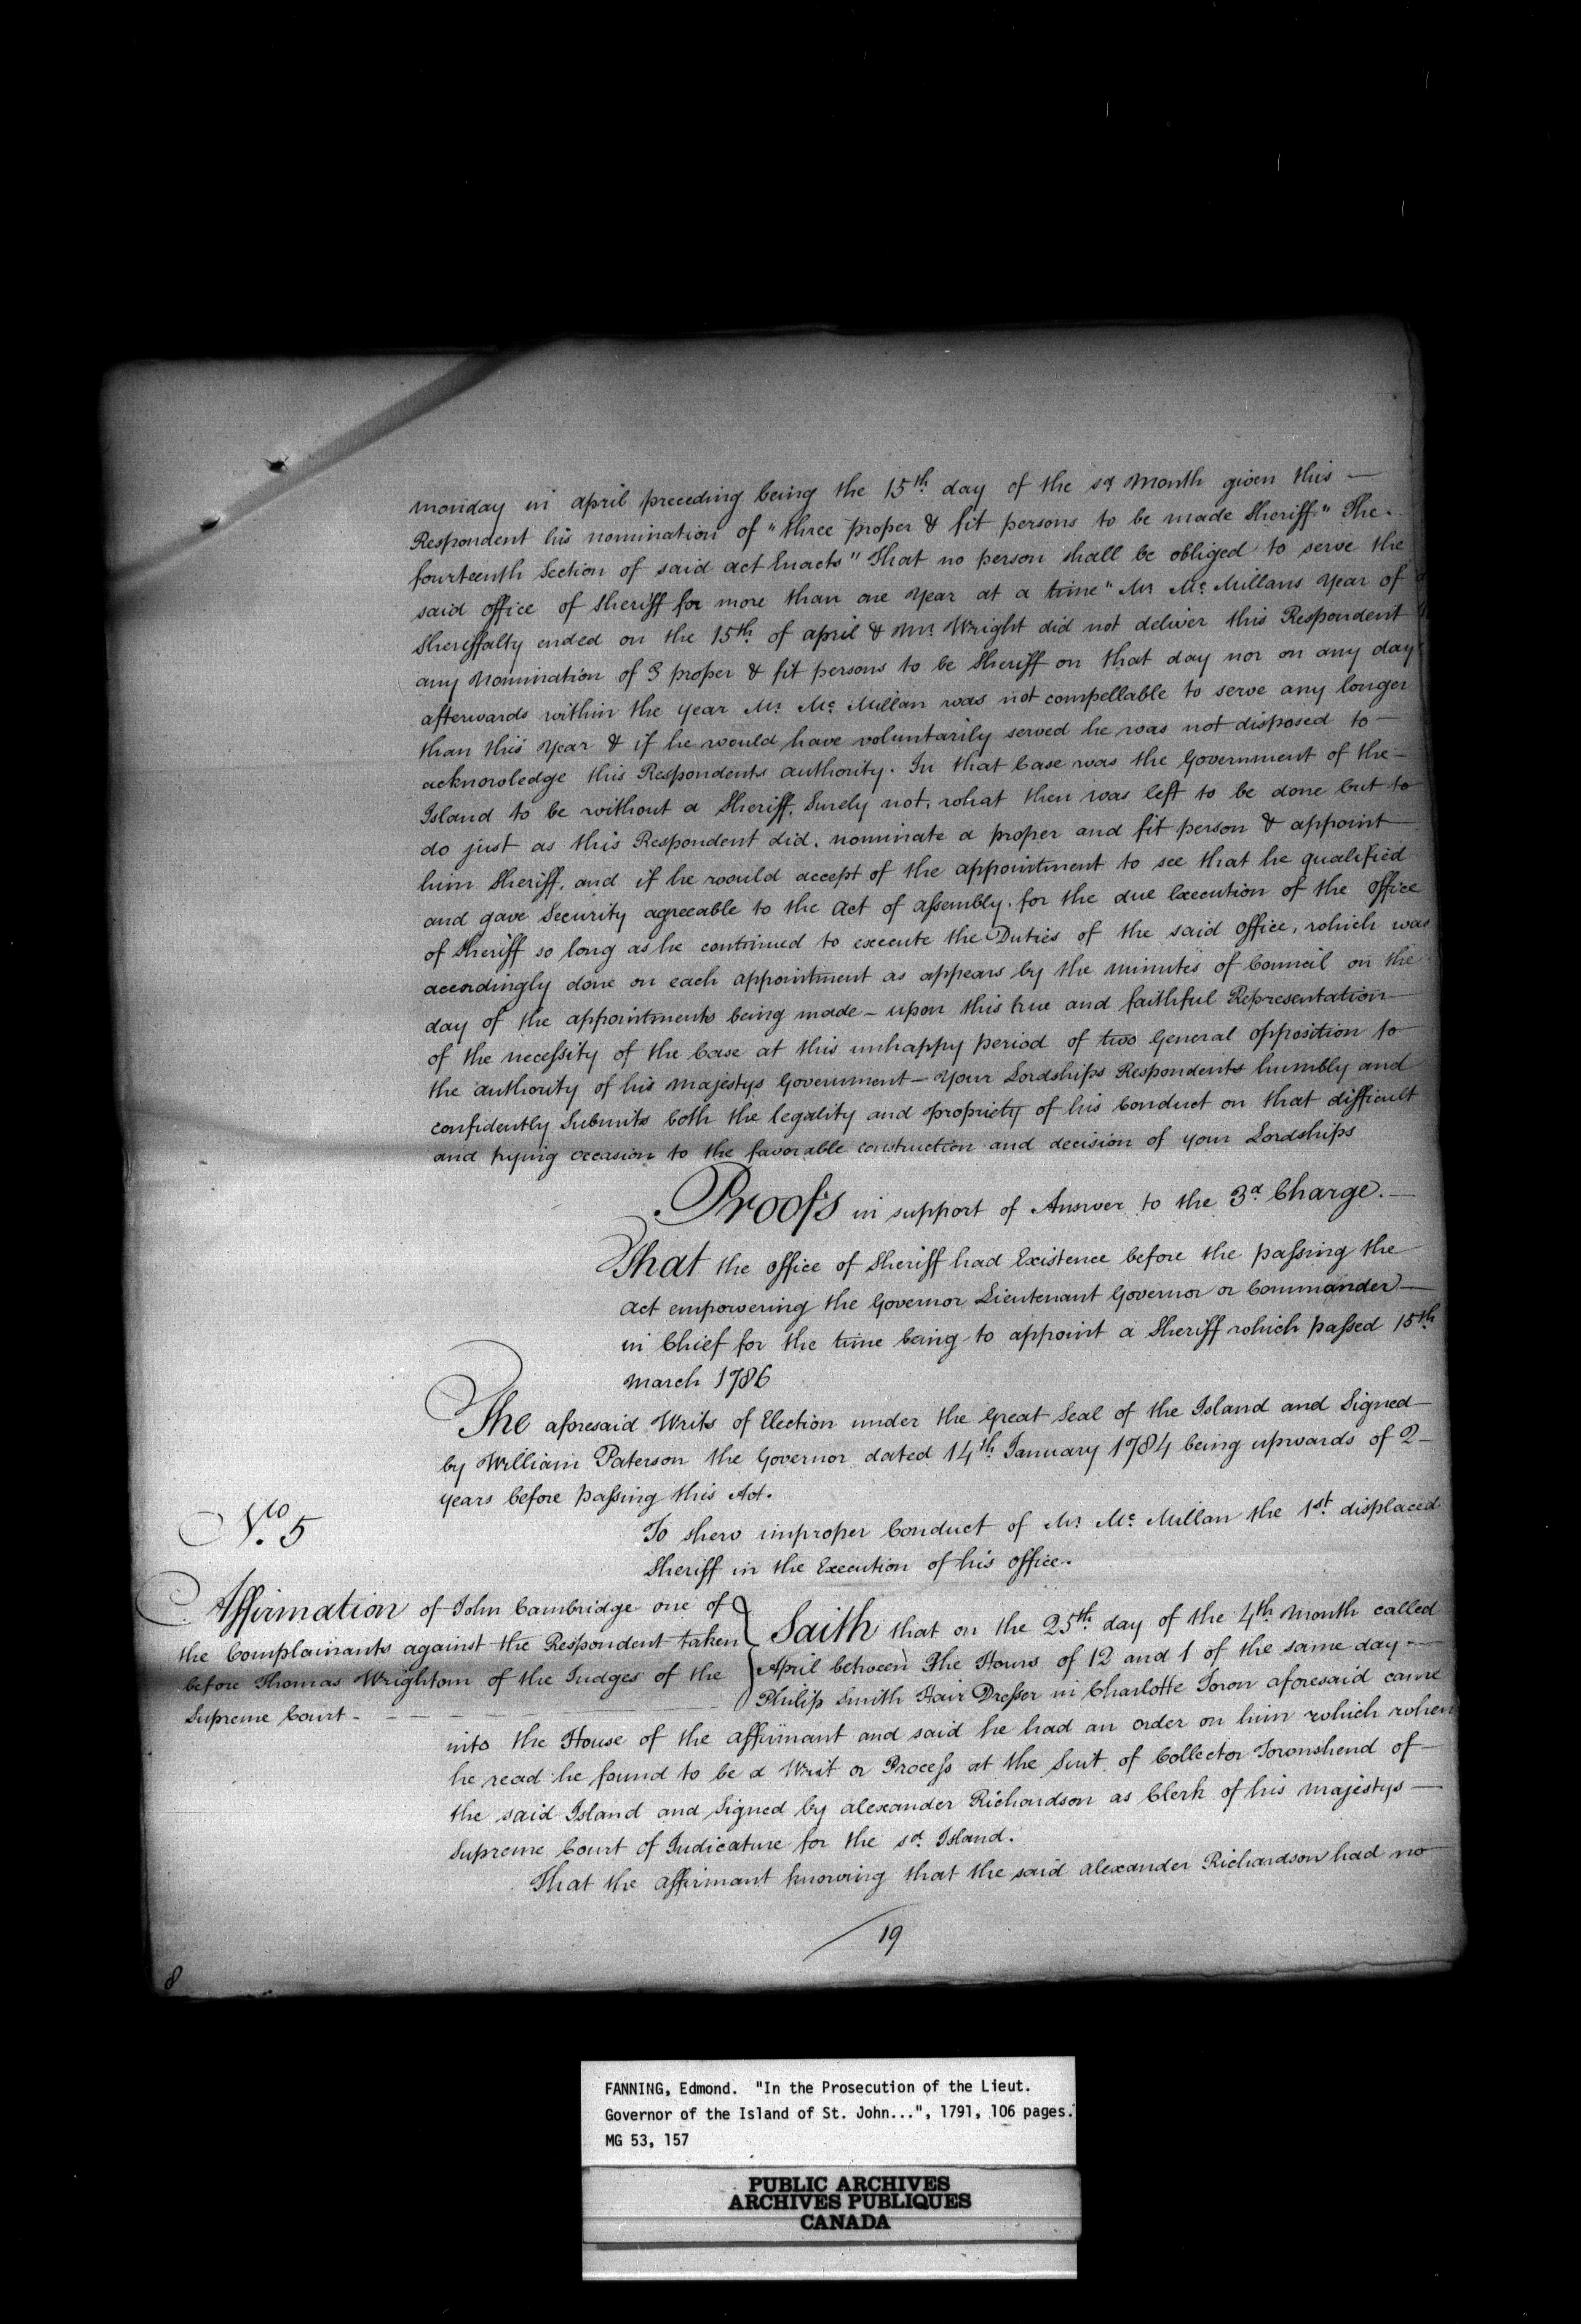 monday in april preceding being the 15th. day of the sd month given this —
Respondent his nomination of "three proper & fit persons to be made Sheriff" The.
fourteenth Section of said act Enacts "That no person shall be obliged to serve the
said office of Sheriff for more than one Year at a time" Mr Mc. Millans Year of
Sheriffalty ended on the 15th. of april & Mr. Wright did not deliver this Respondent
any Nomination of 3 proper & fit persons to be Sheriff on that day nor on any day
afterwards within the year Mr. Mc. Millan was not compellable to serve any longer
than this Year & if he would have voluntarily served he was not disposed to —
acknowledge this Respondents authority. In that Case was the Government of the —
Island to be without a Sheriff, Surely not, what then was left to be done but to
do just as this Respondent did, nominate a proper and fit person & appoint —
him Sheriff, and if he would accept of the appointment to see that he qualified
and gave Security agreeable to the Act of assembly, for the due Execution of the Office
of Sheriff so long as he continued to execute the Duties of the said Office, which was
accordingly done on each appointment as appears by the minutes of Council on the
day of the appointments being made – upon this true and faithful Representation
of the necessity of the Case at this unhappy period of two General opposition to
the authority of his majestys Government – Your Lordships Respondents humbly and
confidently Submits both the legality and propriety of his Conduct on that difficult
and trying occasion to the favorable construction and decision of your Lordships
Proofs in support of Answer to the 3d Charge. —
That the Office of Sheriff had Existence before the passing the
Act empowering the Governor Lieutenant Governor or Commander —
in Chief for the time being to appoint a Sheriff which passed 15th
march 1786
The aforesaid Writs of Election under the Great Seal of the Island and Signed
by William Paterson the Governor dated 14th January 1784 being upwards of 2 –
years before passing this Act.
No. 5
To shew improper Conduct of Mr Mc. Millan the 1st. displaced
Sheriff in the Execution of his office.
Affirmation of John Cambridge one of
the Complainants against the Respondent taken
before Thomas Wright one of the Judges of the
Supreme Court –
Saith that on the 25th. day of the 4th Month called
April between The Hours of 12 and 1 of the same day —
Philip Smith Hair Dresser in Charlotte Town aforesaid came
into the House of the affirmant and said he had an order on him which when
he read he found to be a Writ or Process at the Suit of Collector Townshend of —
the said Island and Signed by alexander Richardson as Clerk of his majestys —
Supreme Court of Judicature for the sd. Island.
That the affirmant knowing that the said alexander Richardson had no
19
8
FANNING, Edmond. "In the Prosecution of the Lieut.
Governor of the Island of St. John...", 1791, 106 pages.
MG 53, 157
PUBLIC ARCHIVES
ARCHIVES PUBLIQUES
CANADA